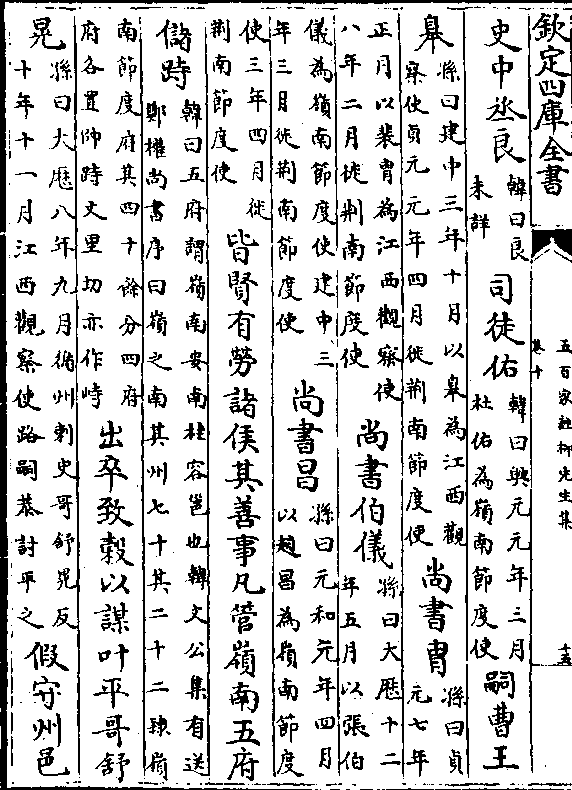 欽定四庫全書
五百家註柳先生集
卷十
十五
史中丞良韓曰良未詳司徒佑韓曰興元元年三月杜佑為嶺南節度使嗣曹王
臯孫曰建中三年十月以臯為江西觀察使貞元元年四月徙荆南節度使尚書胄孫曰貞元七年
正月以裴胄為江西觀察使八年二月徙荆南節度使尚書伯儀孫曰大歷十二年五月以張伯
儀為嶺南節度使建中三年三月徙荆南節度使尚書昌孫曰元和元年四月以趙昌為嶺南節度
使三年四月徙荆南節度使皆賢有勞諸侯其善事凡管嶺南五府
儲跱韓曰五府謂嶺南安南桂容邕也韓文公集有送鄭權尚書序曰嶺之南其州七十其二十二隸嶺
南節度府其四十餘分四府府各置帥跱丈里切亦作峙出卒致穀以謀叶平哥舒
晃孫曰大歷八年九月循州刺史哥舒晃反十年十一月江西觀察使路嗣恭討平之假守州邑